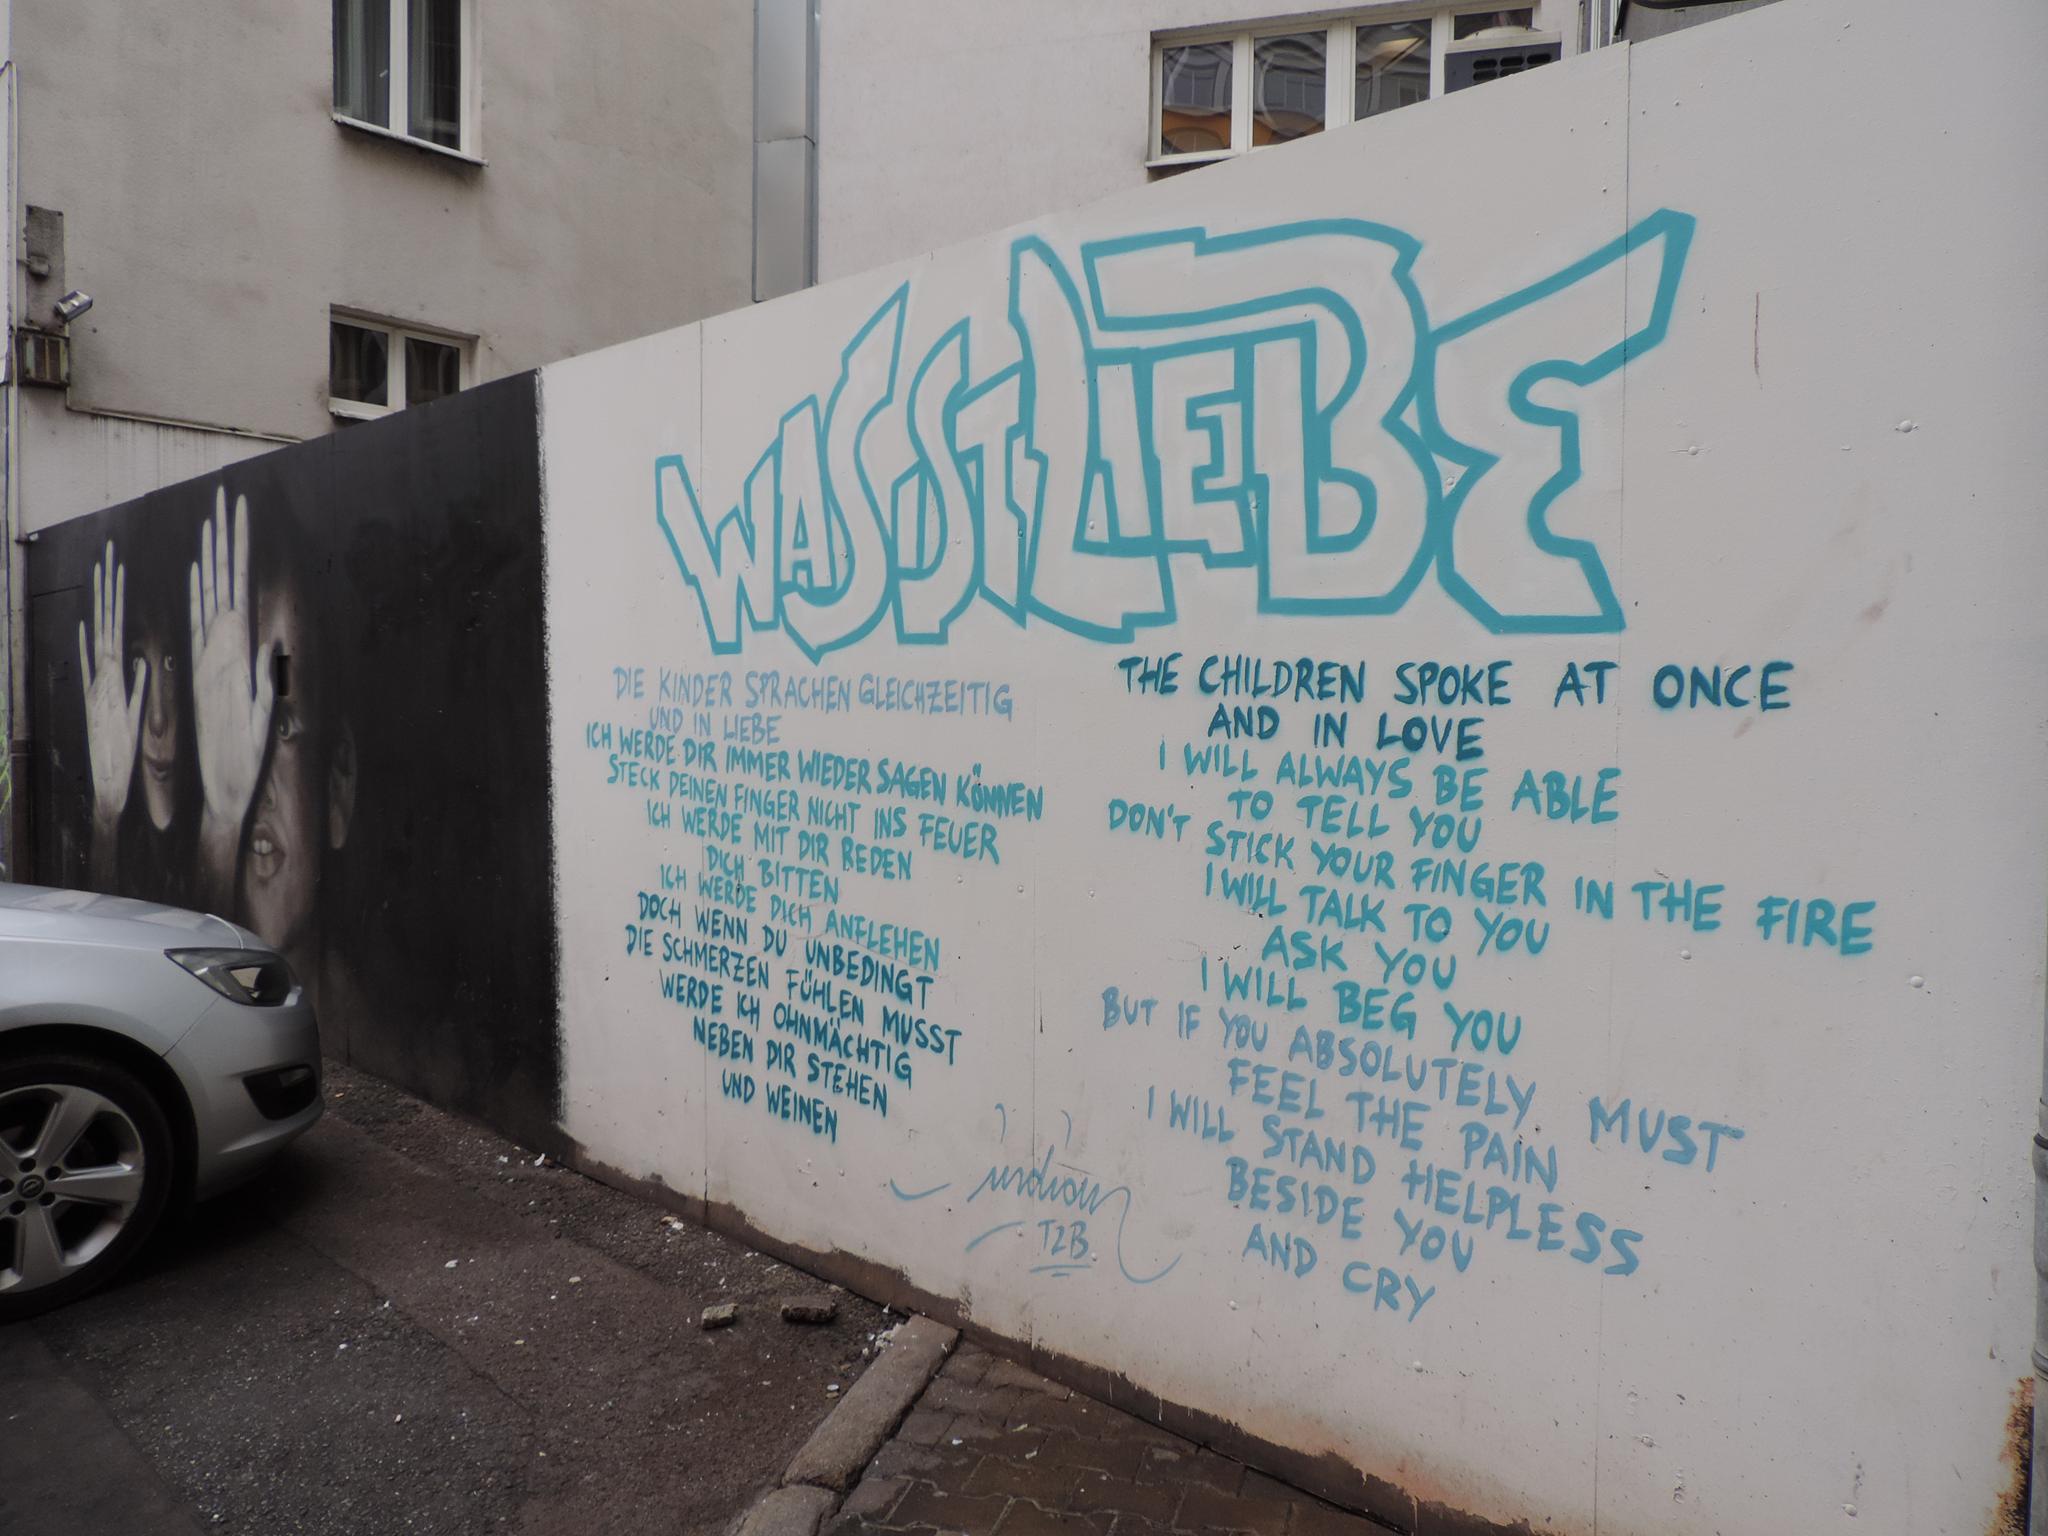 WASISTLIEBE
DIE KINDER SPRACHEN GLEICHZEITIG
UND IN LIEBE
ICH WERDE DIR IMMER WIEDER SAGEN KÖNNEN
STECK DEINEN FINGER NICHT INS FEUER
ICH WERDE MIT DIR REDEN
DICH BITTEN
ICH WERDE DICH ANFLEHEN
DOCH WENN DU UNBEDINGT
DIE SCHMERZEN FÜHLEN MUSST
WERDE ICH OHNMÄCHTIG
NEBEN DIR STEHEN
UND WEINEN
THE CHILDREN SPOKE AT ONCE
AND IN LOVE
I WILL ALWAYS BE ABLE
TO TELL YOU
DON'T STICK YOUR FINGER IN THE FIRE
I WILL TALK TO YOU
ASK YOU
I WILL BEG YOU
BUT IF YOU ABSOLUTELY MUST
FEEL THE PAIN
I WILL STAND HELPLESS
BESIDE YOU
AND CRY
T2B